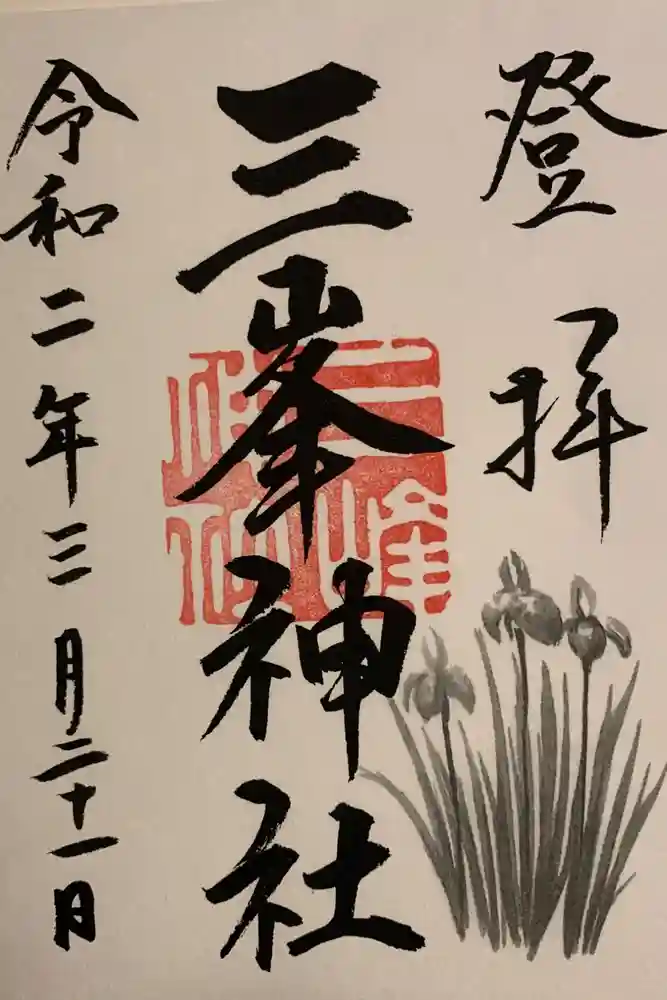 登拝
三峯神社
令和二年三月二十一日